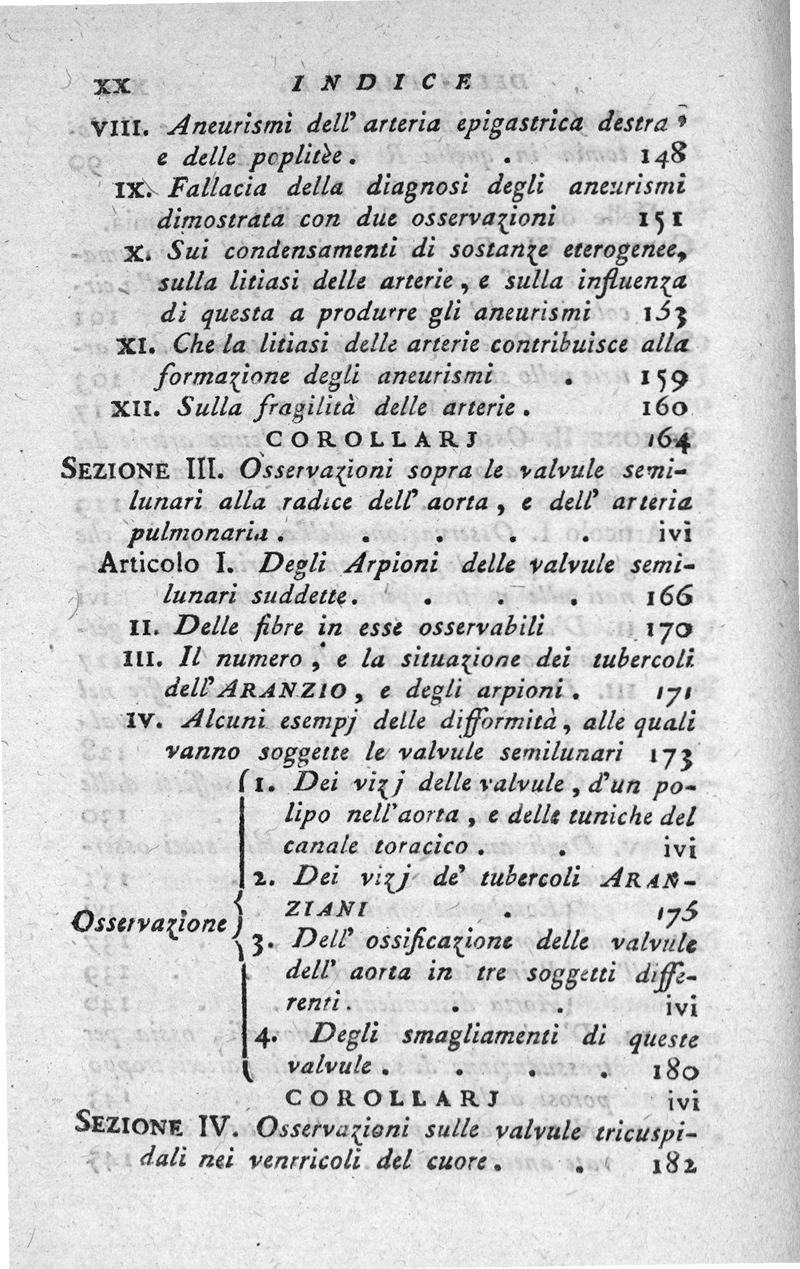 XX INDICE
VIII. Aneurismi dell' arteria epigastrica destra
e delle poplitèe . . 148
IX. Fallacia della diagnosi degli aneurismi
dimostrata con due osservazioni 151
X. Sui condensamenti di sostanze eterogenee,
sulla litiasi delle arterie, e sulla influenza
di questa a produrre gli aneurismi 153
XI. Che la litiasi delle arterie contribuisce alla
formazione degli aneurismi . 159
XII. Sulla fragilità delle arterie . 160
COROLLARJ 164
SEZIONE III. Osservazioni sopra le valvule semi-
lunari alla radice dell' aorta, e dell' arteria
pulmonaria . . . . . ivi
Articolo I. Degli Arpioni delle valvule semi-
lunari suddette. . . . 166
II. Delle fibre in esse osservabili 170
III. Il numero, e la situazione dei tubercoli
dell' ARANZIO, e degli arpioni . 171
IV. Alcuni esempj delle difformità, alle quali
vanno soggette le valvule semilunari 173
1. Dei vizj delle valvule, d'un po-
lipo nell'aorta, e delle tuniche del
canale toracico . . ivi
2. Dei vizj de' tubercoli ARAN-
Osservazione ZIANI . 175
3. Dell' ossificazione delle valvule
dell' aorta in tre soggetti diffe-
renti . . . ivi
4. Degli smagliamenti di queste
valvule . . . . 180
COROLLARJ ivi
SEZIONE IV. Osservazioni sulle valvule tricuspi-
dali nei ventricoli del cuore . . 182